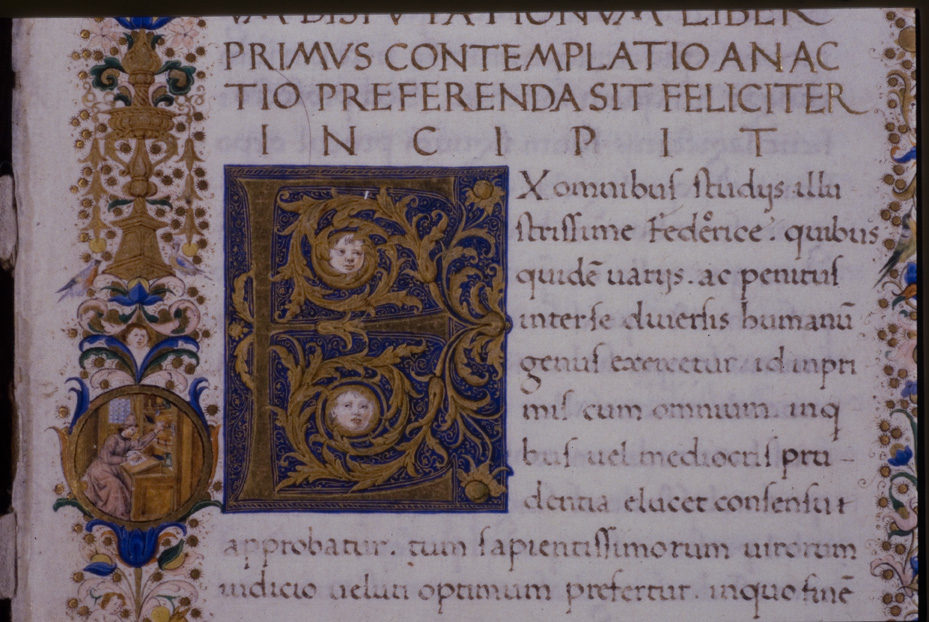 VM DISPVTATIONVM LIBER
PRIMVS CONTEMPLATIO AN AC
TIO PREFERENDA SIT FELICITER
INCIPIT
EX omnibus studijs illu
strissime Federice. quibus
quidē uarijs. ac penitus
inter se diuersis humanū
genus exercetur id inpri
mis cum omnium inq
bus uel mediocris pru-
dentia elucet consensu t
approbatur. tum sapientissimorum uirorum
iudicio ueluti optimum prefertur. inquo finē